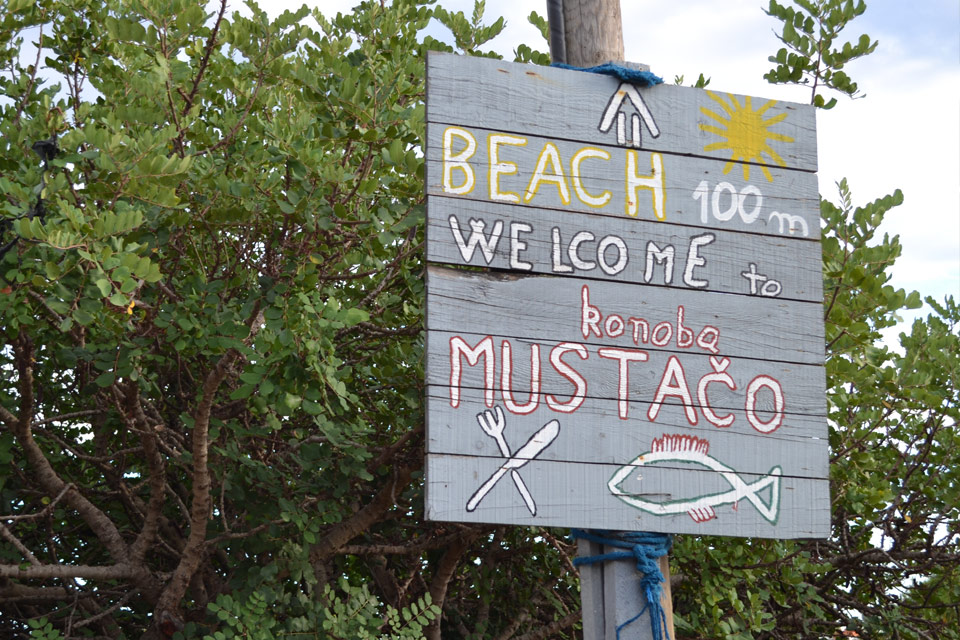 BEACH 100 m
WELCOME to
konoba
MUSTAČO